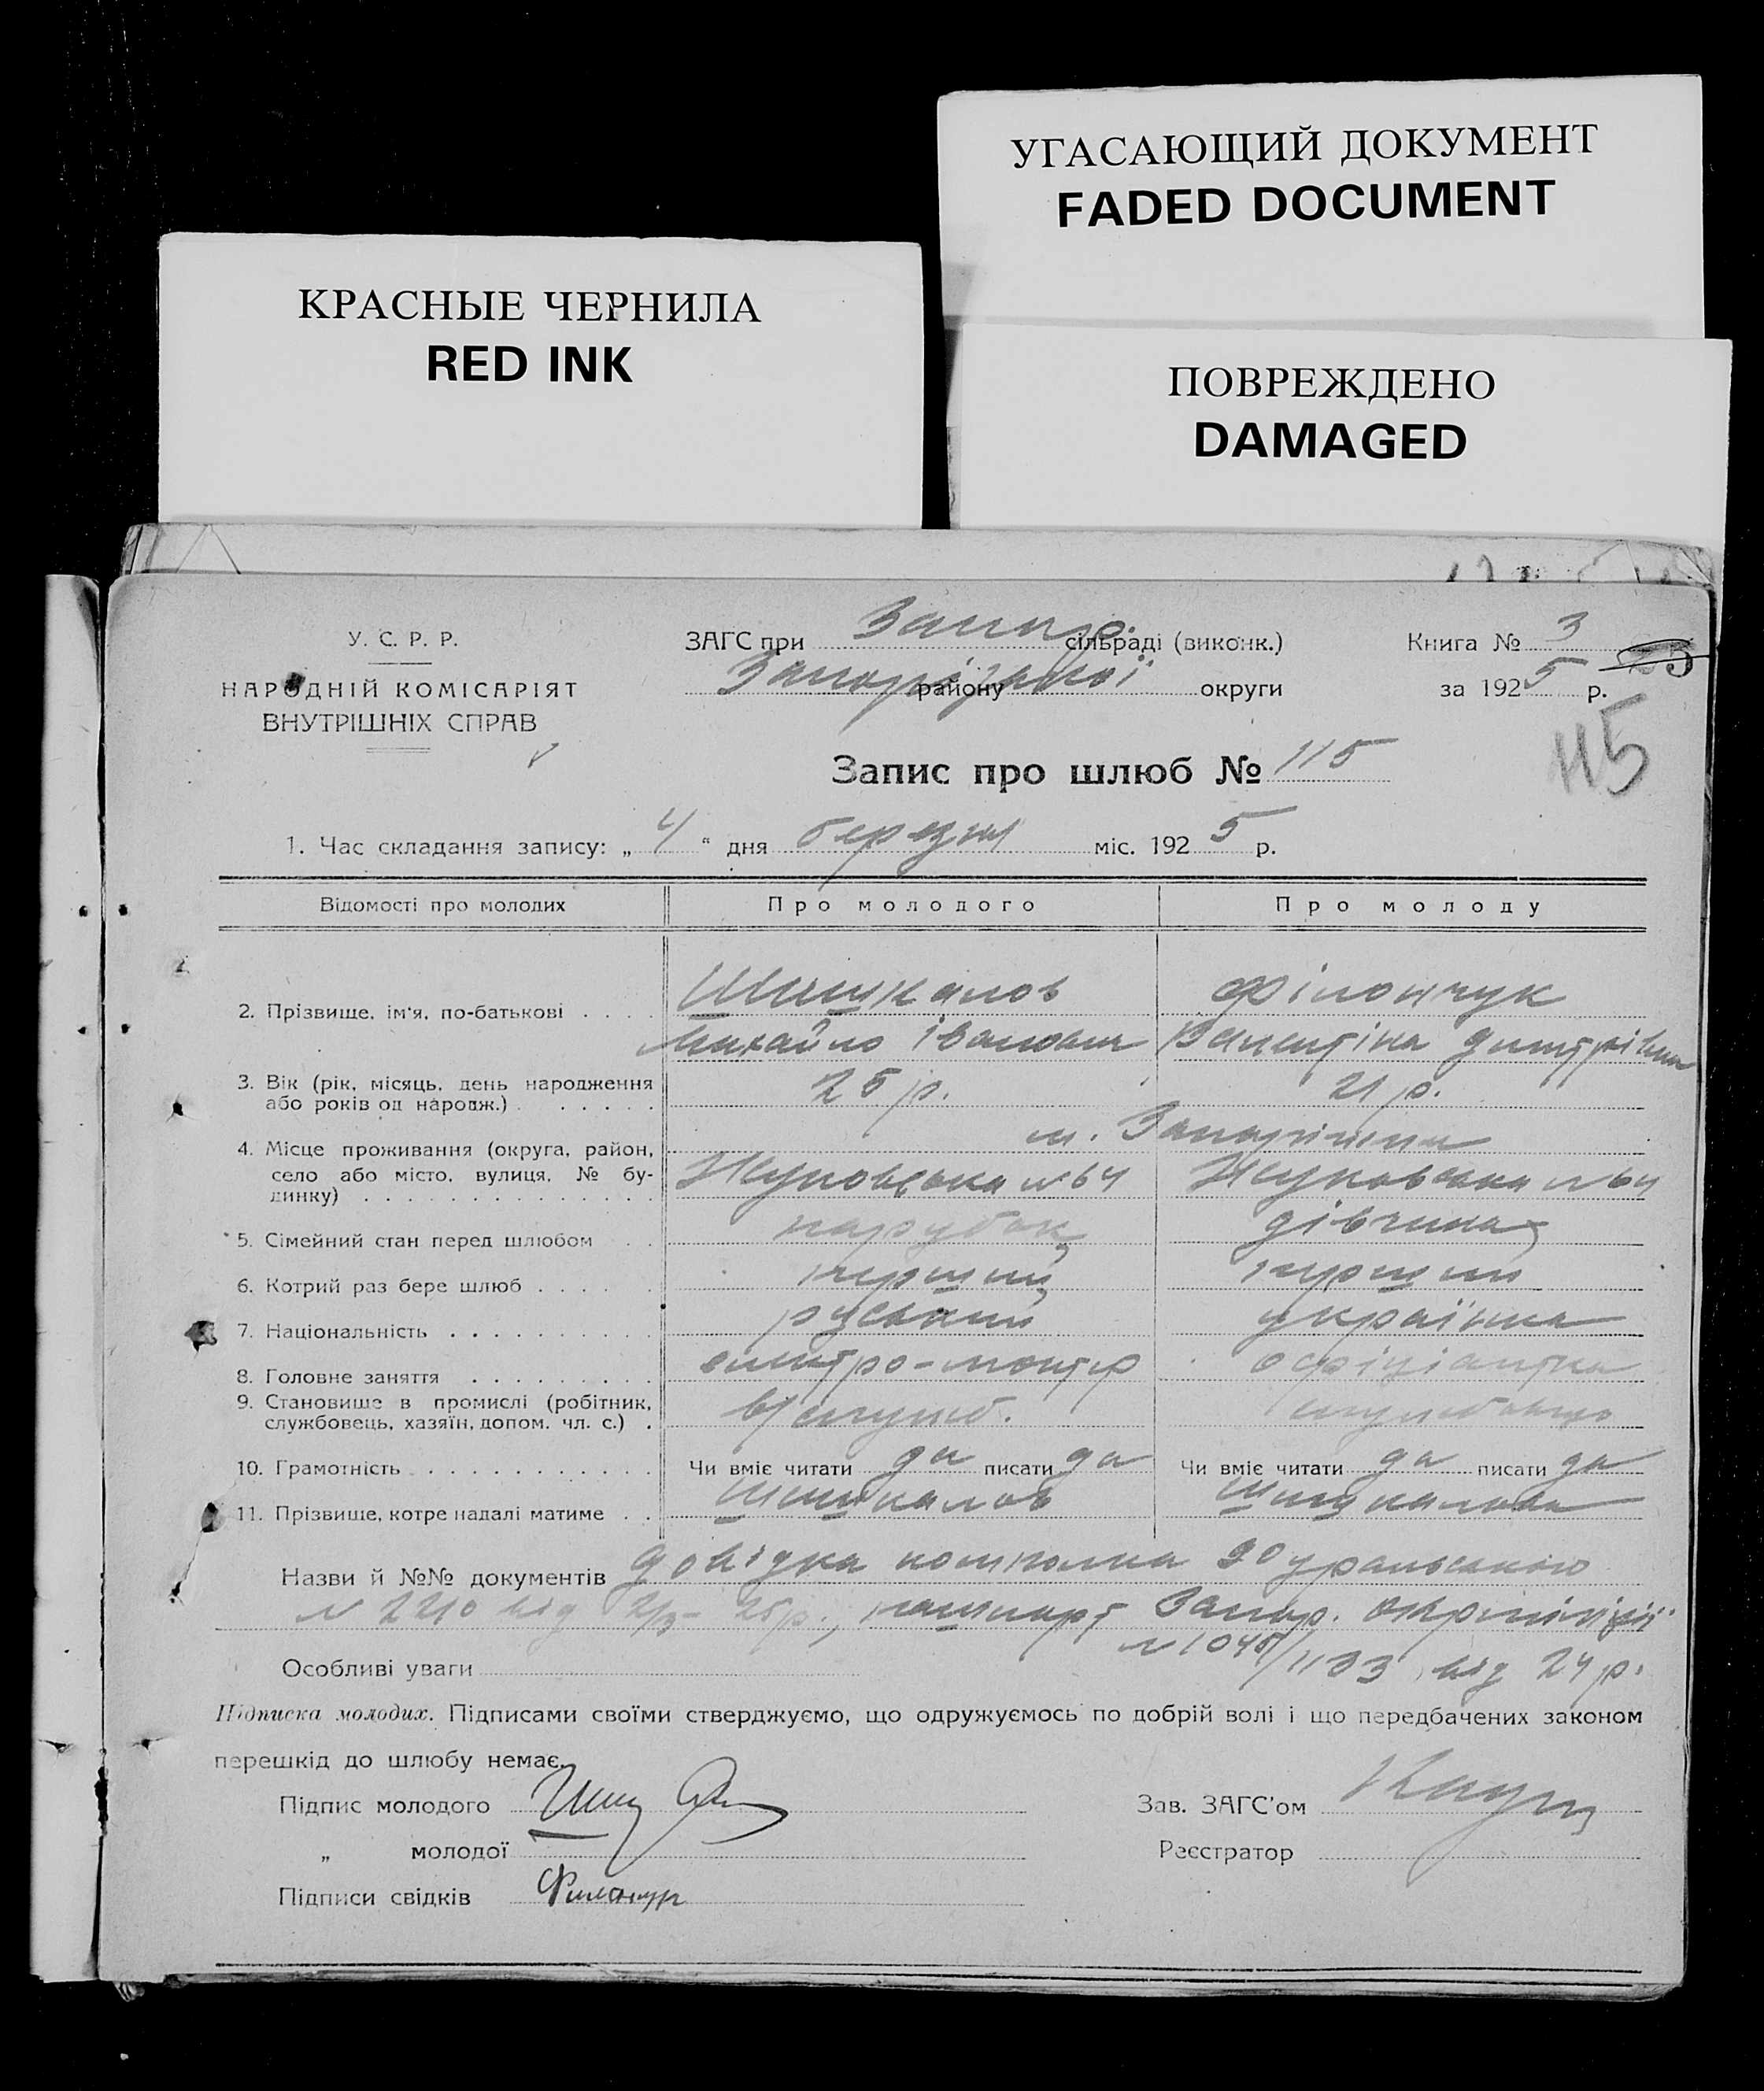 УГАСАЮЩИЙ ДОКУМЕНТ
FADED DOCUMENT
КРАСНЫЕ ЧЕРНИЛА
RED INK
ПОВРЕЖДЕНО
DAMAGED
У. С. Р. Р.
НАРОДНІЙ КОМІСАРІЯТ
ВНУТРІШНІХ СПРАВ
ЗАГС при Запор. сільраді (виконк.)
Запорізької району округи
Книга № 3
за 1925 р.
115
Запис про шлюб № 115
1. Час складання запису: „ 4 “ дня березня міс. 1925 р.
Відомості про молодих Про молодого Про молоду
2. Прізвище, ім'я, по-батькові Шишкалов Філончук
Михайло Іванович Валентіна Дмитрівна
3. Вік (рік, місяць, день народження 25 р. 21 р.
або років од народж.)
м. Запоріжжя
4. Місце проживання (округа, район,
село або місто, вулиця, № бу- Жуковська № 64 Жуковська № 64
динку)
5. Сімейний стан перед шлюбом парубок дівчина
6. Котрий раз бере шлюб перший перший
7. Національність руський українка
8. Головне заняття електро-монтер офіціантка
9. Становище в промислі (робітник, в/служб. службовець
службовець, хазяїн, допом. чл. с.)
10. Грамотність Чи вміє читати да писати да Чи вміє читати да писати да
11. Прізвище, котре надалі матиме Шишкалов Шишкалова
Назви й №№ документів довідка комполка 90 уральського
№ 2210 від 2/3- 25р., пашпорт Запор. окрміліції
№ 1045/1133 від 24 р.
Особливі уваги
Підписка молодих. Підписами своїми стверджуємо, що одружуємось по добрій волі і що передбачених законом
перешкід до шлюбу немає.
Підпис молодого
Зав. ЗАГС'ом
„ молодої
Реєстратор
Підписи свідків Филончук